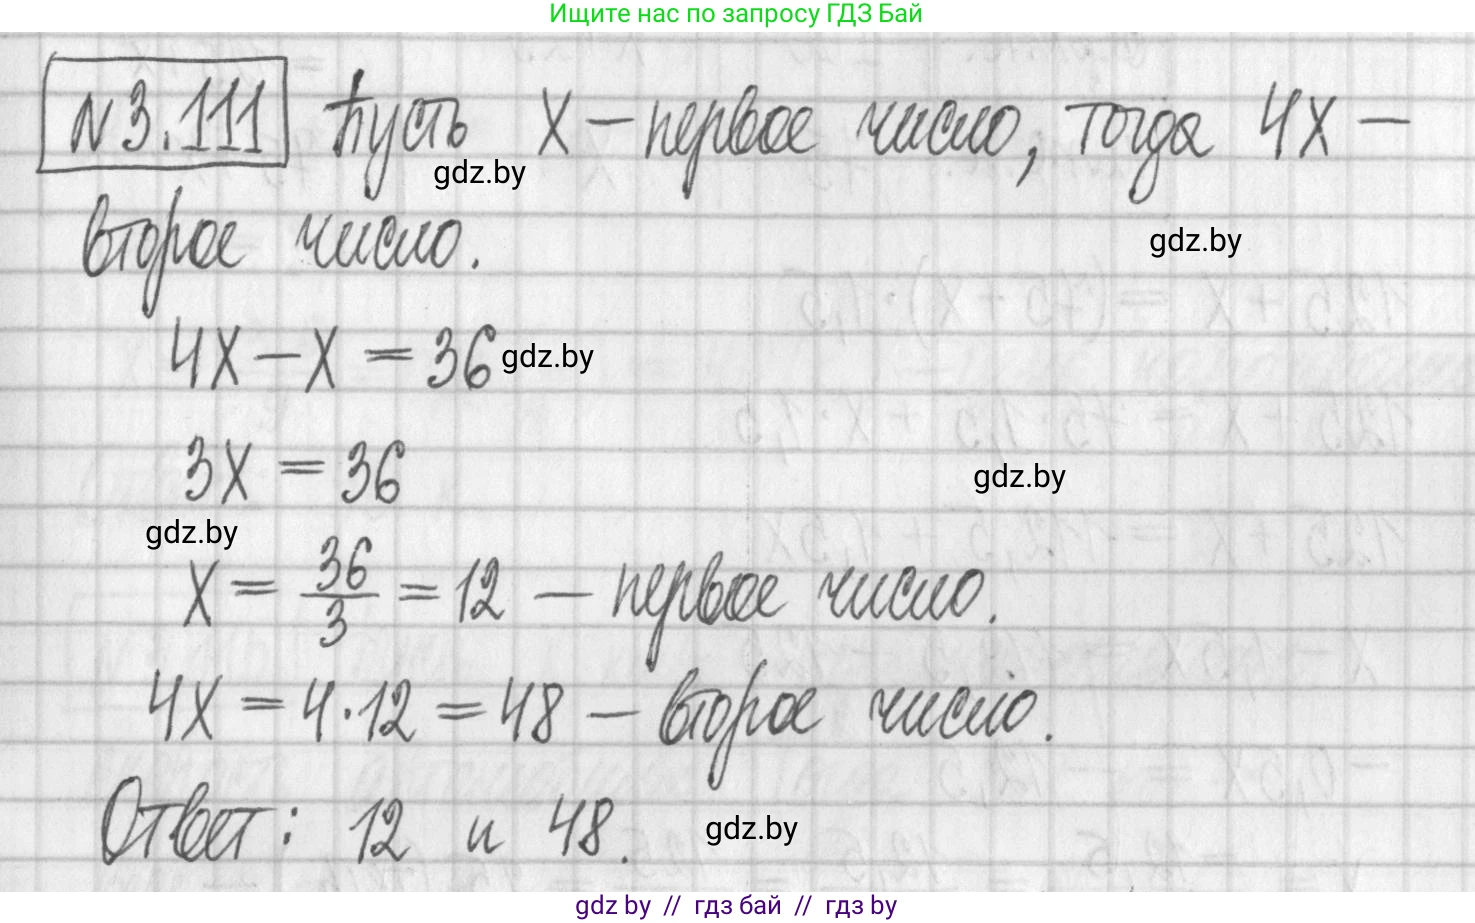 Ищите нас по запросу ГДЗ Бай
№3.111 Пусть x – первое число, тогда 4x –
gdz.by
второе число.
gdz.by
4x – x = 36
gdz.by
3x = 36
gdz.by
gdz.by
x = 36/3 = 12 – первое число.
4x = 4·12 = 48 – второе число.
Ответ: 12 и 48.
gdz.by
gdz by // гдз бай // гдз by